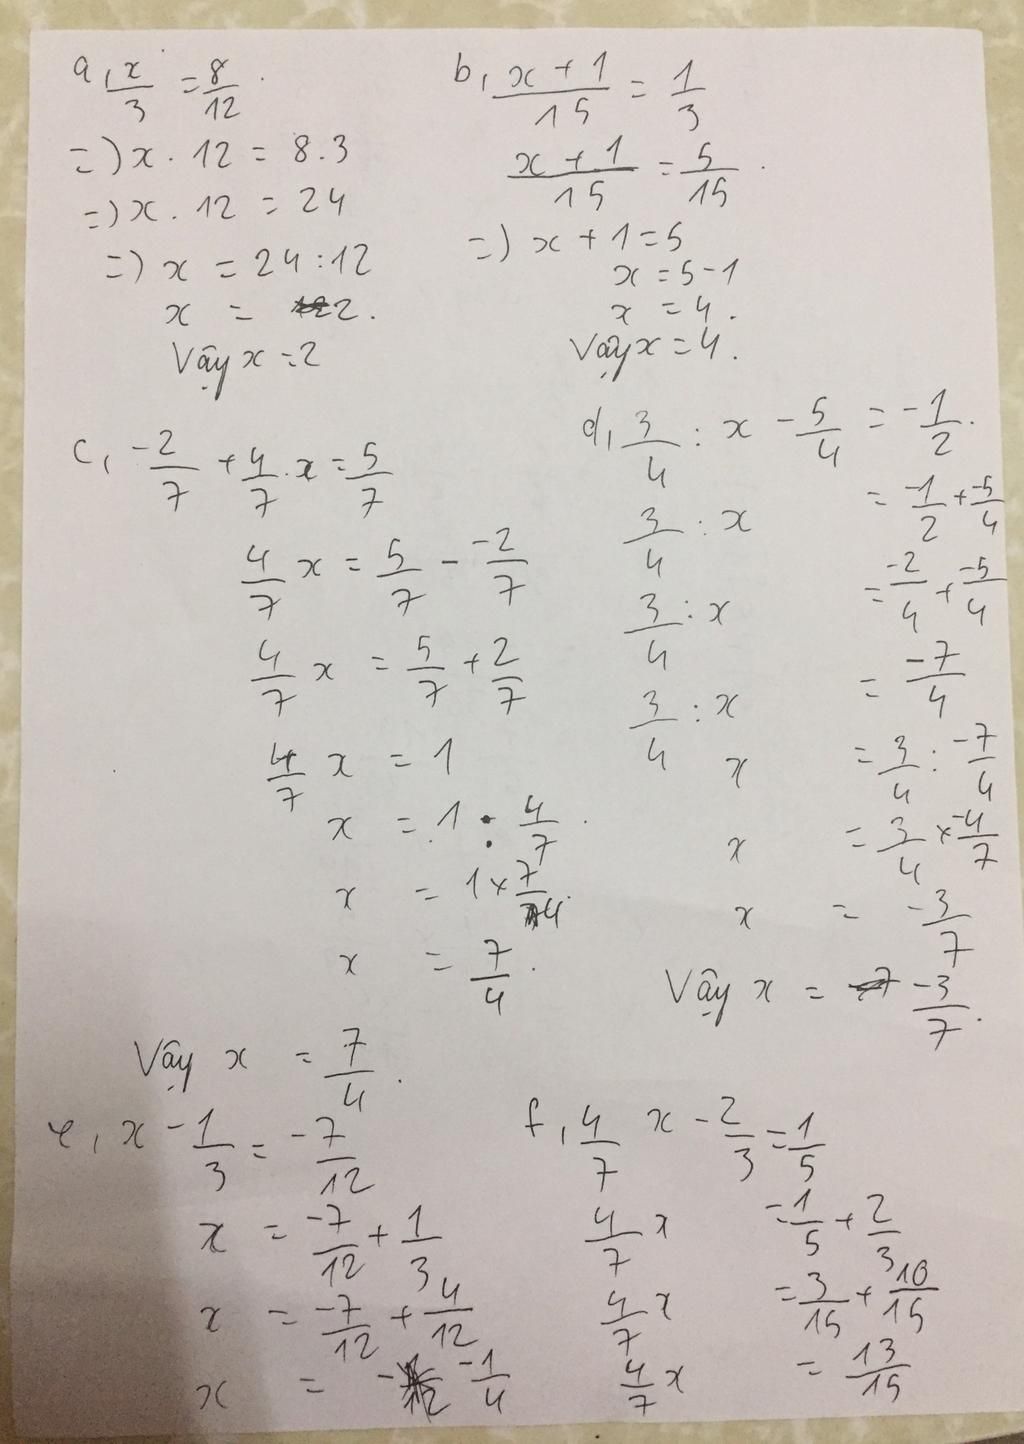 a, x/3 = 8/12.
=) x . 12 = 8.3
=) x . 12 = 24
=) x = 24 : 12
x = 2.
Vậy x = 2
b, (x + 1)/15 = 1/3
(x + 1)/15 = 5/15.
=) x + 1 = 5
x = 5 - 1
x = 4.
Vậy x = 4.
c, -2/7 + 4/7 . x = 5/7
4/7 x = 5/7 - -2/7
4/7 x = 5/7 + 2/7
4/7 x = 1
x = 1 : 4/7.
x = 1 × 7/4.
x = 7/4.
Vậy x = 7/4.
d, 3/4 : x - 5/4 = -1/2.
3/4 : x = -1/2 + -5/4
3/4 : x = -2/4 + -5/4
3/4 : x = -7/4
x = 3/4 : -7/4
x = 3/4 × -4/7
x = -3/7
Vậy x = -3/7.
e, x - 1/3 = -7/12
x = -7/12 + 1/3
x = -7/12 + 4/12
x = -1/4
f, 4/7 x - 2/3 = 1/5
4/7 x = 1/5 + 2/3
4/7 x = 3/15 + 10/15
4/7 x = 13/15